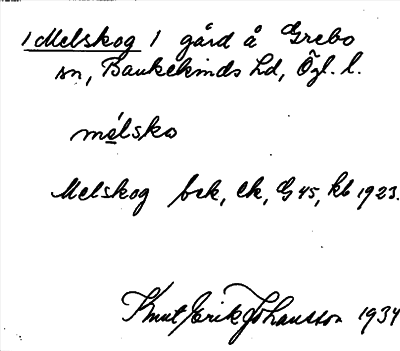 /Melskog/ gård å Grebo
sn, Bankekinds hd, Ögl. l.
mélsko
Melskog bek, ek, G 45, kb 1923.
Knut Erik Johansson 1934